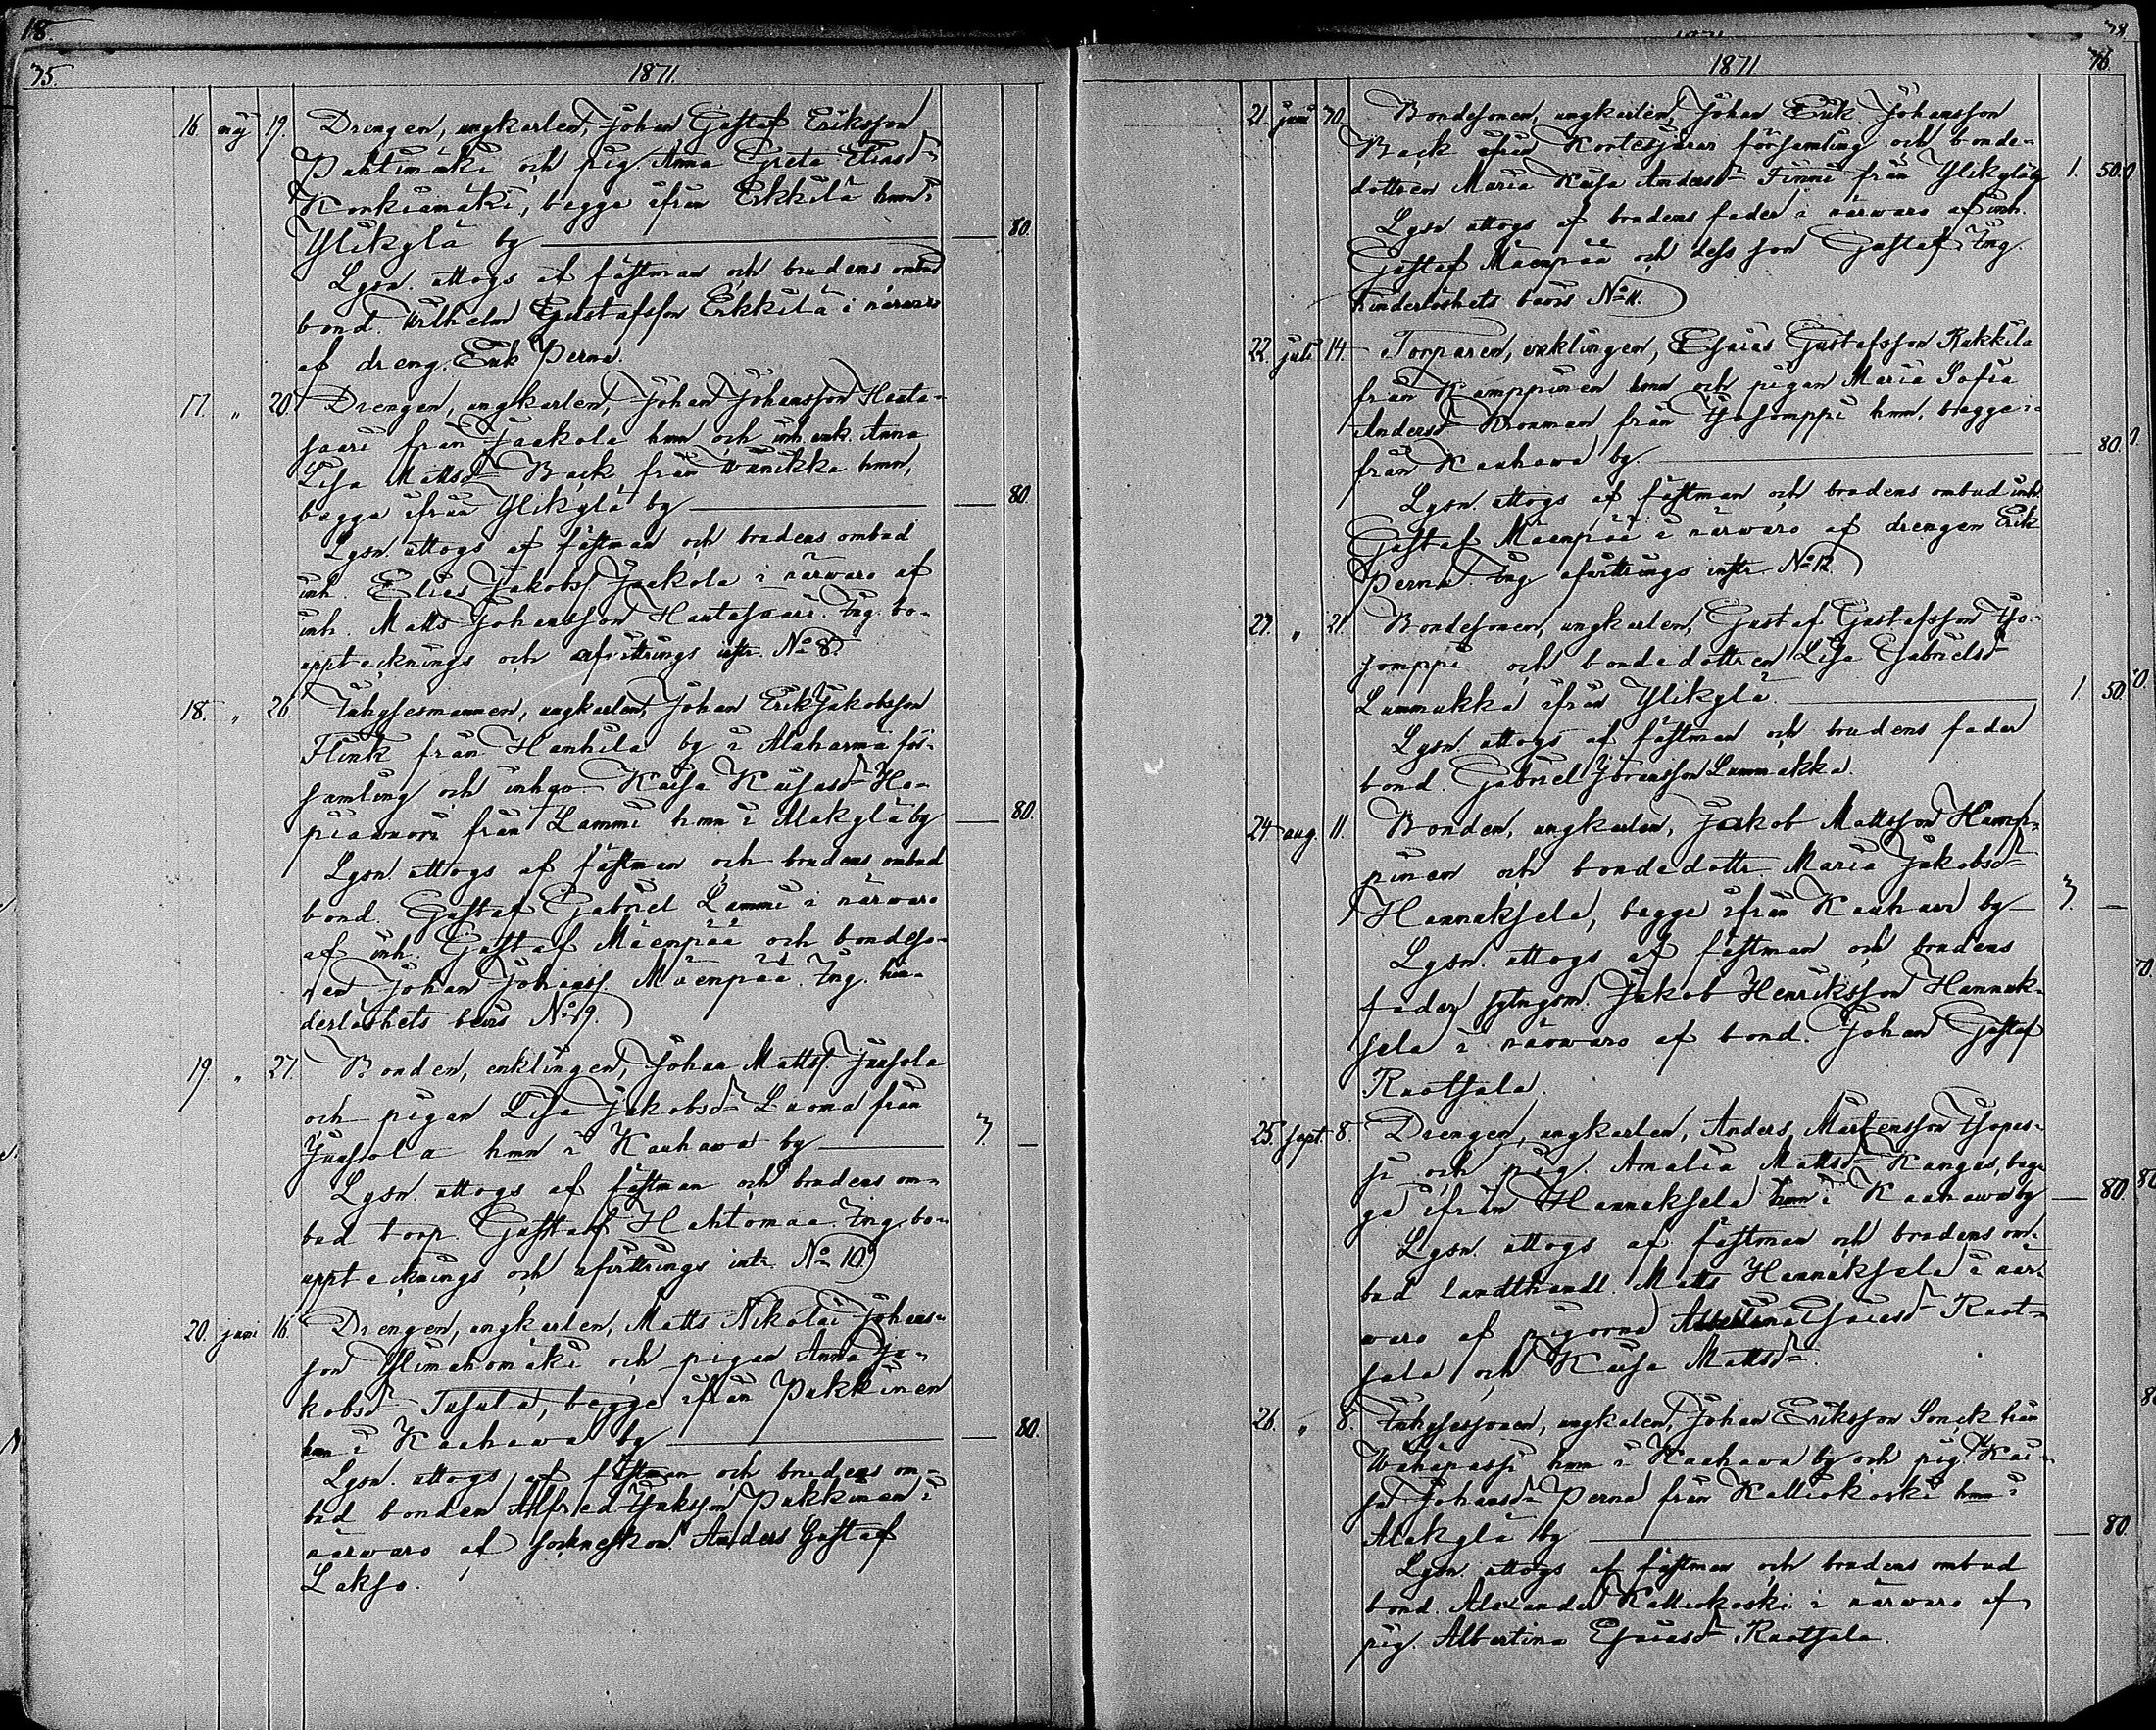 18.
38.
35.
1871.
16. maj 19. Drengen, ungkarlen, Johan Gustaf Eriksson
Pahtimäki och pig. Anna Greta Eliasd:r
Korkiamäki, begge ifrån Erkkilä hmn i
Ylikylä by — 80.
Lysn. uttogs af fästman och brudens ombud
bond. Wilhelm Gustafsson Erkkilä i närwaro
af dreng. Erik Perna.
17. " 20. Drengen, ungkarlen, Johan Johansson Hauta-
saari från Jaakola hmn och inh. enk. Anna
Lisa Mattsd:r Back från Wänikka hmn,
begge ifrån Ylikylä by — 80.
Lysn. uttogs af fästman och brudens ombud
inh. Elias Jakobss. Jaakola i närwaro af
inh. Matts Johansson Hautasaari. Ing. bo-
upptecknings och afvittrings instr. No 8.
18. " 26. Inhysesmannen, ungkarlen, Johan Erik Jakobsson
Flink från Hanhila by i Alahärmä för-
samling och inhys Kaisa Kaisasd:r Ha-
piawuori från Lammi hmn i Alakylä by — 80.
Lysn. uttogs af fästman och brudens ombud
bond. Gustaf Gabriel Lammi i närwaro
af inh. Gustaf Mäenpää och bondeso-
nen Johan Johanss. Mäenpää. Ing. hin-
derlöshets bevis No 9.
19. " 27. Bonden, enklingen, Johan Mattss. Juusola
och pigan Lisa Jakobsd:r Luoma från
Juusola hmn i Kauhawa by — 3. —
Lysn. uttogs af fästman och brudens om-
bud torp. Gustaf Hahtomaa. Ing. bo-
upptecknings och afvittrings instr. No 10.
20. juni 16. Drengen, ungkarlen, Matts Nikolai Johans-
son Ylimahomäki och pigan Anna Ja-
kobsd:r Tusula, begge ifrån Pukkinen
hmn i Kauhawa by — 80.
Lysn. uttogs af fästman och brudens om-
bud bonden Alfred Isaksson Pukkinen i
närwaro af socknesskom. Anders Gustaf
Lakso.
1871.
36.
21. juni 30. Bondesonen, ungkarlen, Johan Erik Johansson
Back ifrån Kortesjärvi församling och bonde-
dottren Maria Kaisa Andersd:r Finni från Ylikylä by 1. 50.
Lysn. uttogs af brudens fader i närwaro af inh.
Gustaf Mäenpää och dess son Gustaf. Ing.
hinderlöshets bevis No 11.
22. juli 14. Torparen, enklingen, Esaias Gustafsson Rukkila
från Kamppinen hmn och pigan Maria Sofia
Andersd:r Kronman från Isosomppi hmn, begge i-
från Kauhawa by. — 80.
Lysn. uttogs af fästman och brudens ombud inh.
Gustaf Mäenpää i närwaro af drengen Erik
Perna. Ing afvittrings instr. No 12.
23. " 21. Bondesonen, ungkarlen, Gustaf Gustafsson Iso-
somppi och bondedottren Lisa Gabrielsd:r
Lummukka ifrån Ylikylä — 1 50.
Lysn. uttogs af fästman och brudens fader
bond. Gabriel Göransson Lummukka.
24 aug. 11. Bonden, ungkarlen, Jakob Mattsson Hamp-
pinen och bondedottr. Maria Jakobsd:r
Hannuksela, begge ifrån Kauhava by — 3. —
Lysn. uttogs af fästman och brudens
fader sytngsm. Jakob Henriksson Hannuk-
sela i närwaro af bond. Johan Gustaf
Ruotsala.
25. sept. 8. Drengen, ungkarlen, Anders Mårtensson Isopas-
si och pig. Amalia Mattsd:r Kangas, beg-
ge ifrån Hannuksela hmn i Kauhawa by — 80.
Lysn. uttogs af fästman och brudens om-
bud landthandl. Matts Hannuksela i när-
waro af pigorna Albertina Esaiasd:r Ruot-
sala och Kaisa Mattsd:r.
26. " 8. Inhysessonen, ungkarlen, Johan Eriksson Sonck från
Wähäpassi hmn i Kauhawa by och pig. Kai-
sa Johansd:r Perna från Kalliokoski hmn i
Alakylä by — 80.
Lysn. uttogs af fästman och brudens ombud
bond. Alexander Kalliokoski i närwaro af
pig. Albertina Esaiasd:r Ruotsala.